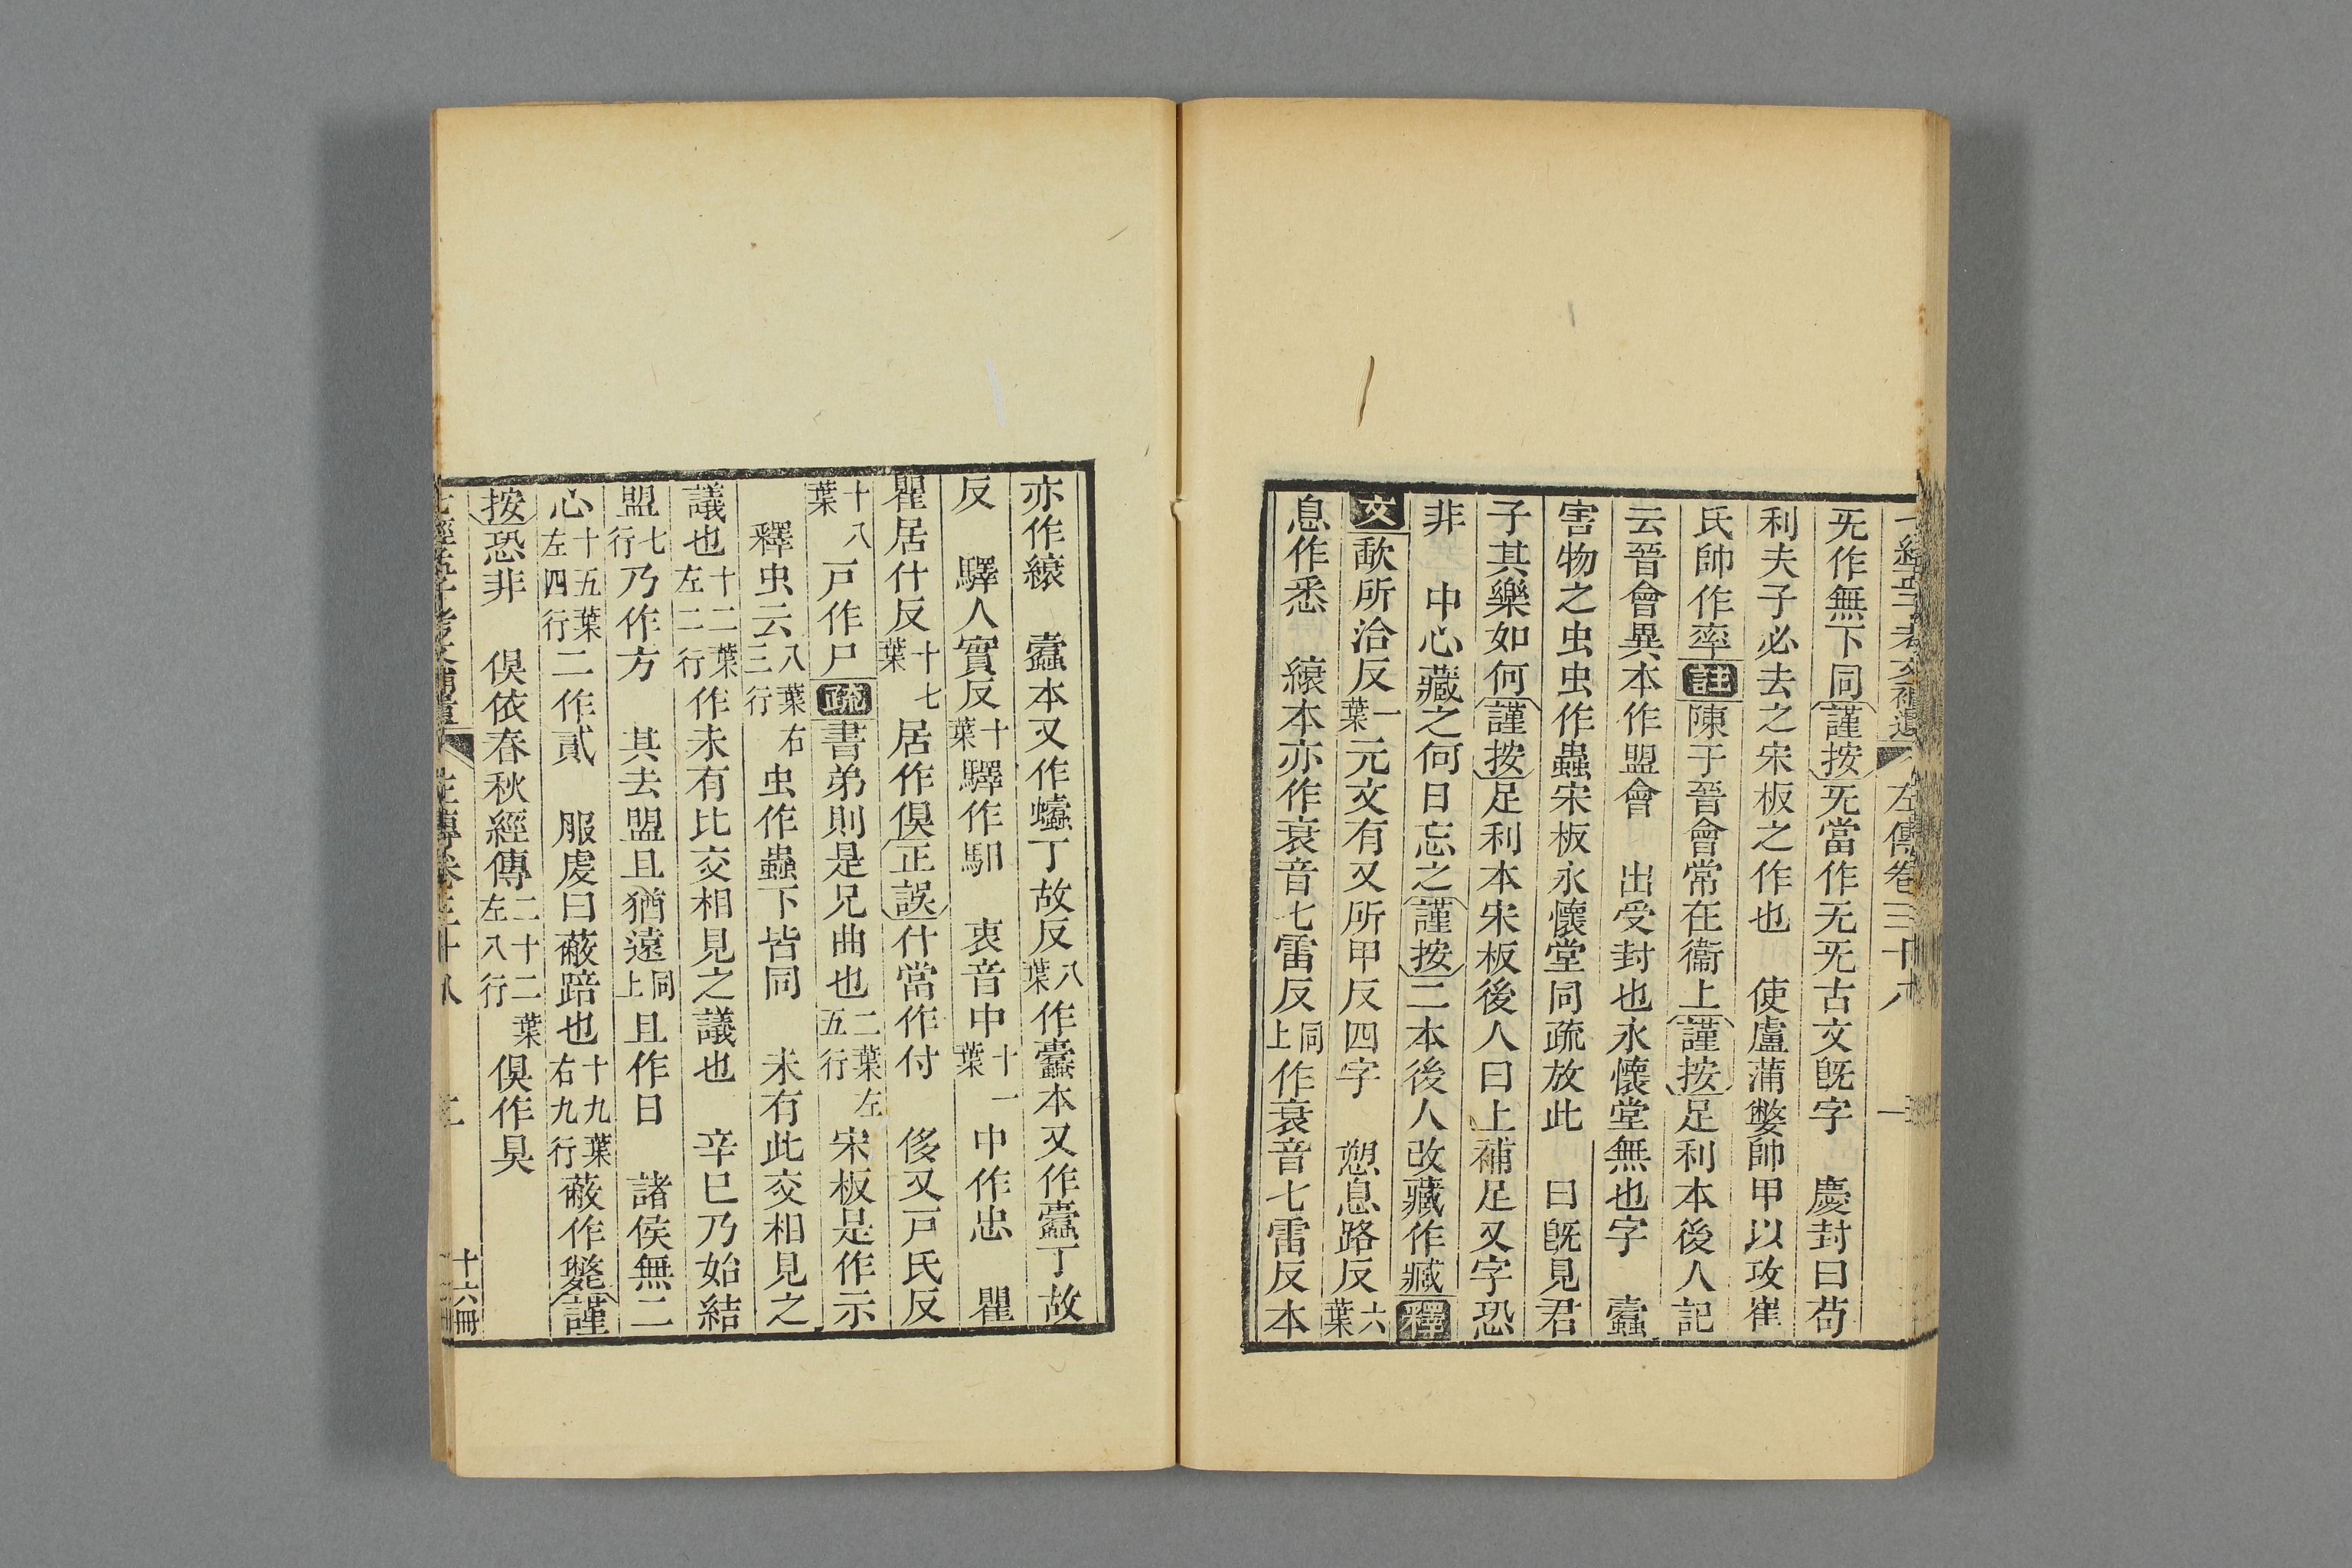 七經孟子考文補遺 左傳卷三十八
旡作無下同謹按旡當作无旡古文旣字　慶封曰苟
利夫子必去之宋板之作也　使盧蒲嫳帥甲以攻崔
氏帥作率註陳于晉會常在衞上謹按足利本後人記
云晉會異本作盟會　出受封也永懷堂無也字　蠹
害物之虫虫作蟲宋板永懷堂同疏放此　曰旣見君
子其樂如何謹按足利本宋板後人曰上補足又字恐
非　中心藏之何日忘之謹按二本後人改藏作臧釋
文歃所洽反一葉元文有又所甲反四字　愬息路反六葉
息作悉　縗本亦作衰音七雷反同上作衰音七雷反本
亦作縗　蠹本又作蠧丁故反八葉作蠹本又作蠹丁故
反　驛人實反十葉驛作馹　衷音中十一葉中作忠　瞿
瞿居什反十七葉居作俱正誤什當作付　侈又戸氏反
十八葉戸作尸疏書弟則是兄曲也二葉左五行宋板是作示
釋虫云八葉右三行虫作蟲下皆同　未有此交相見之
議也十二葉左二行作未有比交相見之議也　辛巳乃始結
盟七行乃作方　其去盟且猶遠同上且作日　諸侯無二
心十五葉左四行二作貳　服虔曰蔽踣也十九葉右九行蔽作斃謹
按恐非　俱依春秋經傳二十二葉左八行俱作具
十六冊